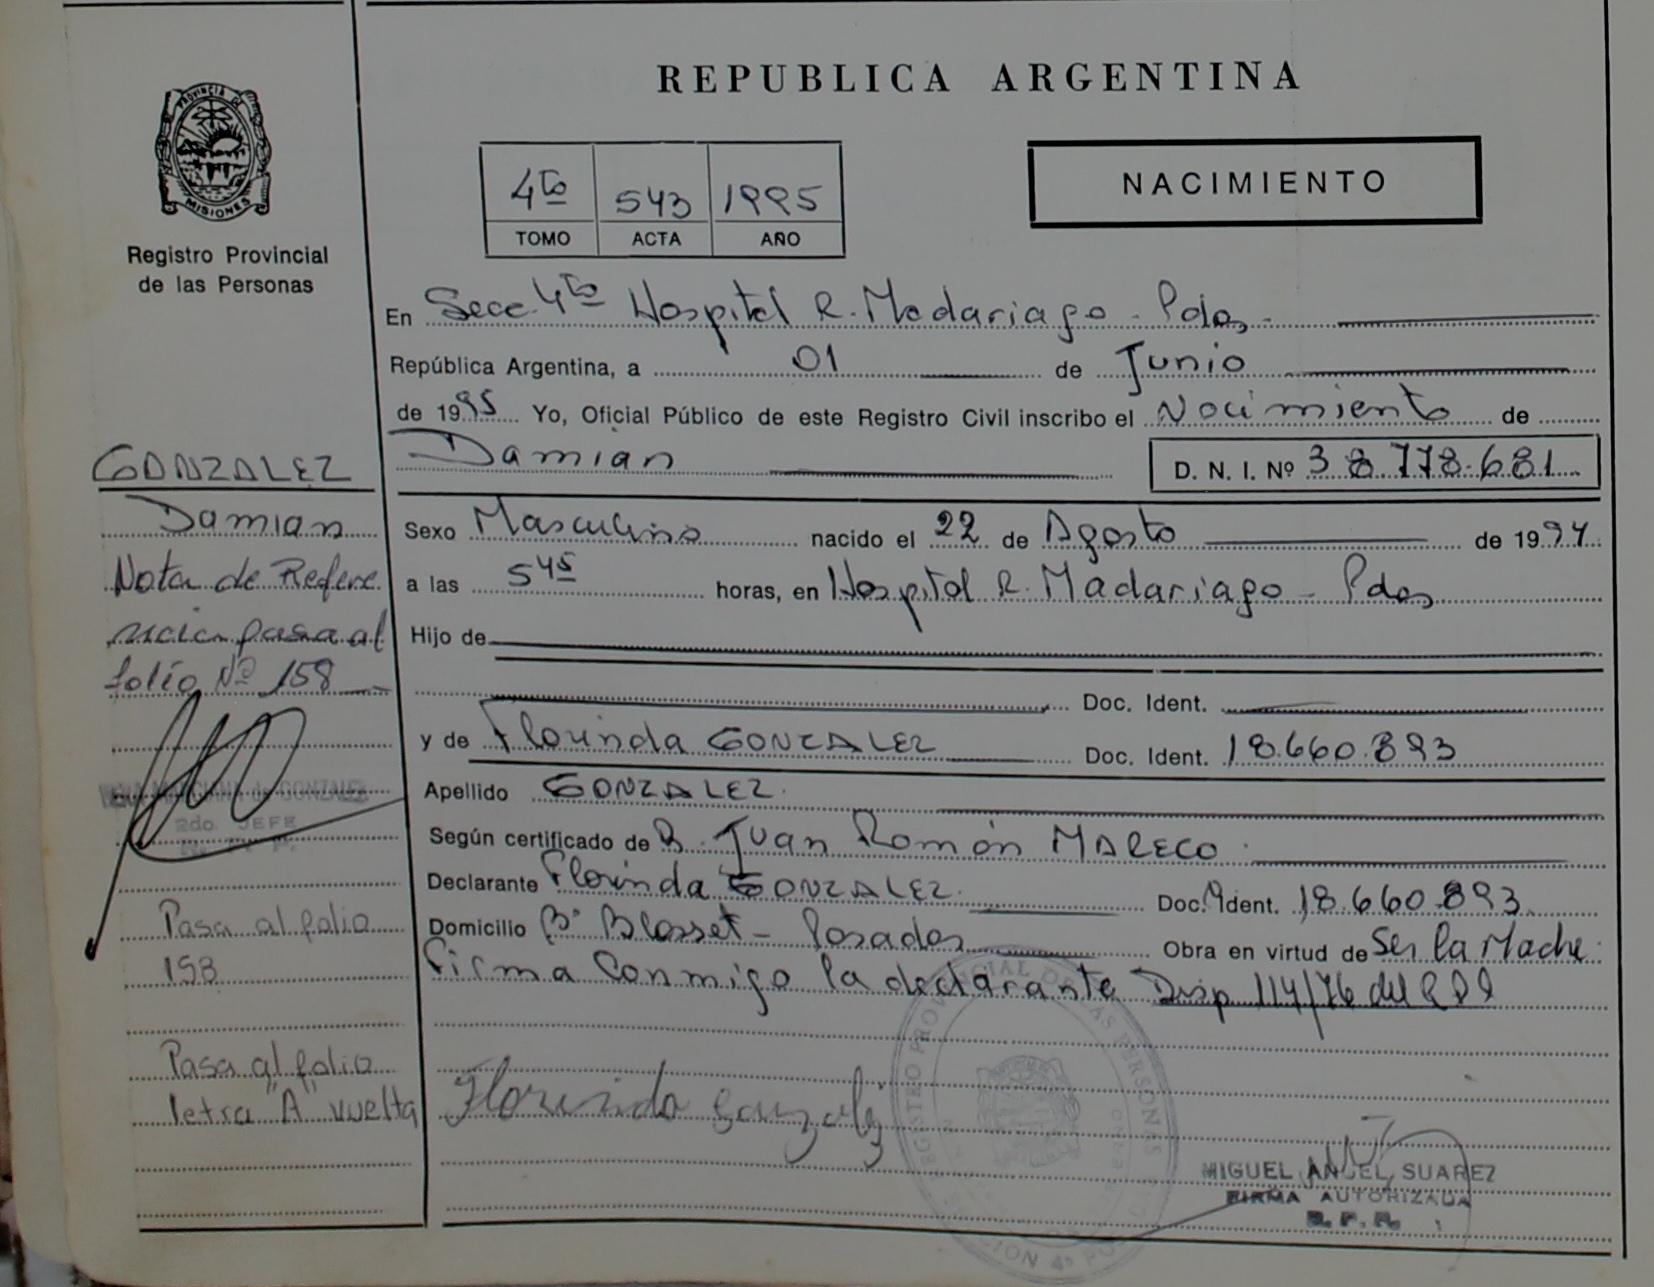 REPUBLICA ARGENTINA
PROVINCIA DE
MISIONES
Registro Provincial
de las Personas
4to 543 1995
TOMO ACTA AÑO
NACIMIENTO
En Secc. 4ta Hospital R. Madariaga - Pdas -
República Argentina, a 01 de Junio
de 1995 Yo, Oficial Público de este Registro Civil inscribo el Nacimiento de
Damian D. N. I. Nº 38.778.681
GONZALEZ
Damian
Sexo Masculino nacido el 22 de Agosto de 1994
Nota de Refere
a las 5 45 horas, en Hospital R. Madariaga - Pdas
pasa al
Hijo de
folio Nº 158
Doc. Ident.
y de Florinda GONZALEZ Doc. Ident. 18.660.893
de GONZALEZ
2do. JEFE
Apellido GONZALEZ
Según certificado de D. Juan Ramón MARECO
Declarante Florinda GONZALEZ Doc. Ident. 18.660.893
Domicilio Bº Blosset - Posadas Obra en virtud de Ser la Madre
Firma Conmigo la declarante Disp 114/76 del RPP
Pasa al folio
158
Pasa al folio
letra "A" vuelta
Florinda Gonzalez
REGISTRO PROVINCIAL DE LAS PERSONAS
MIGUEL ANGEL SUAREZ
FIRMA AUTORIZADA
R. P. P.